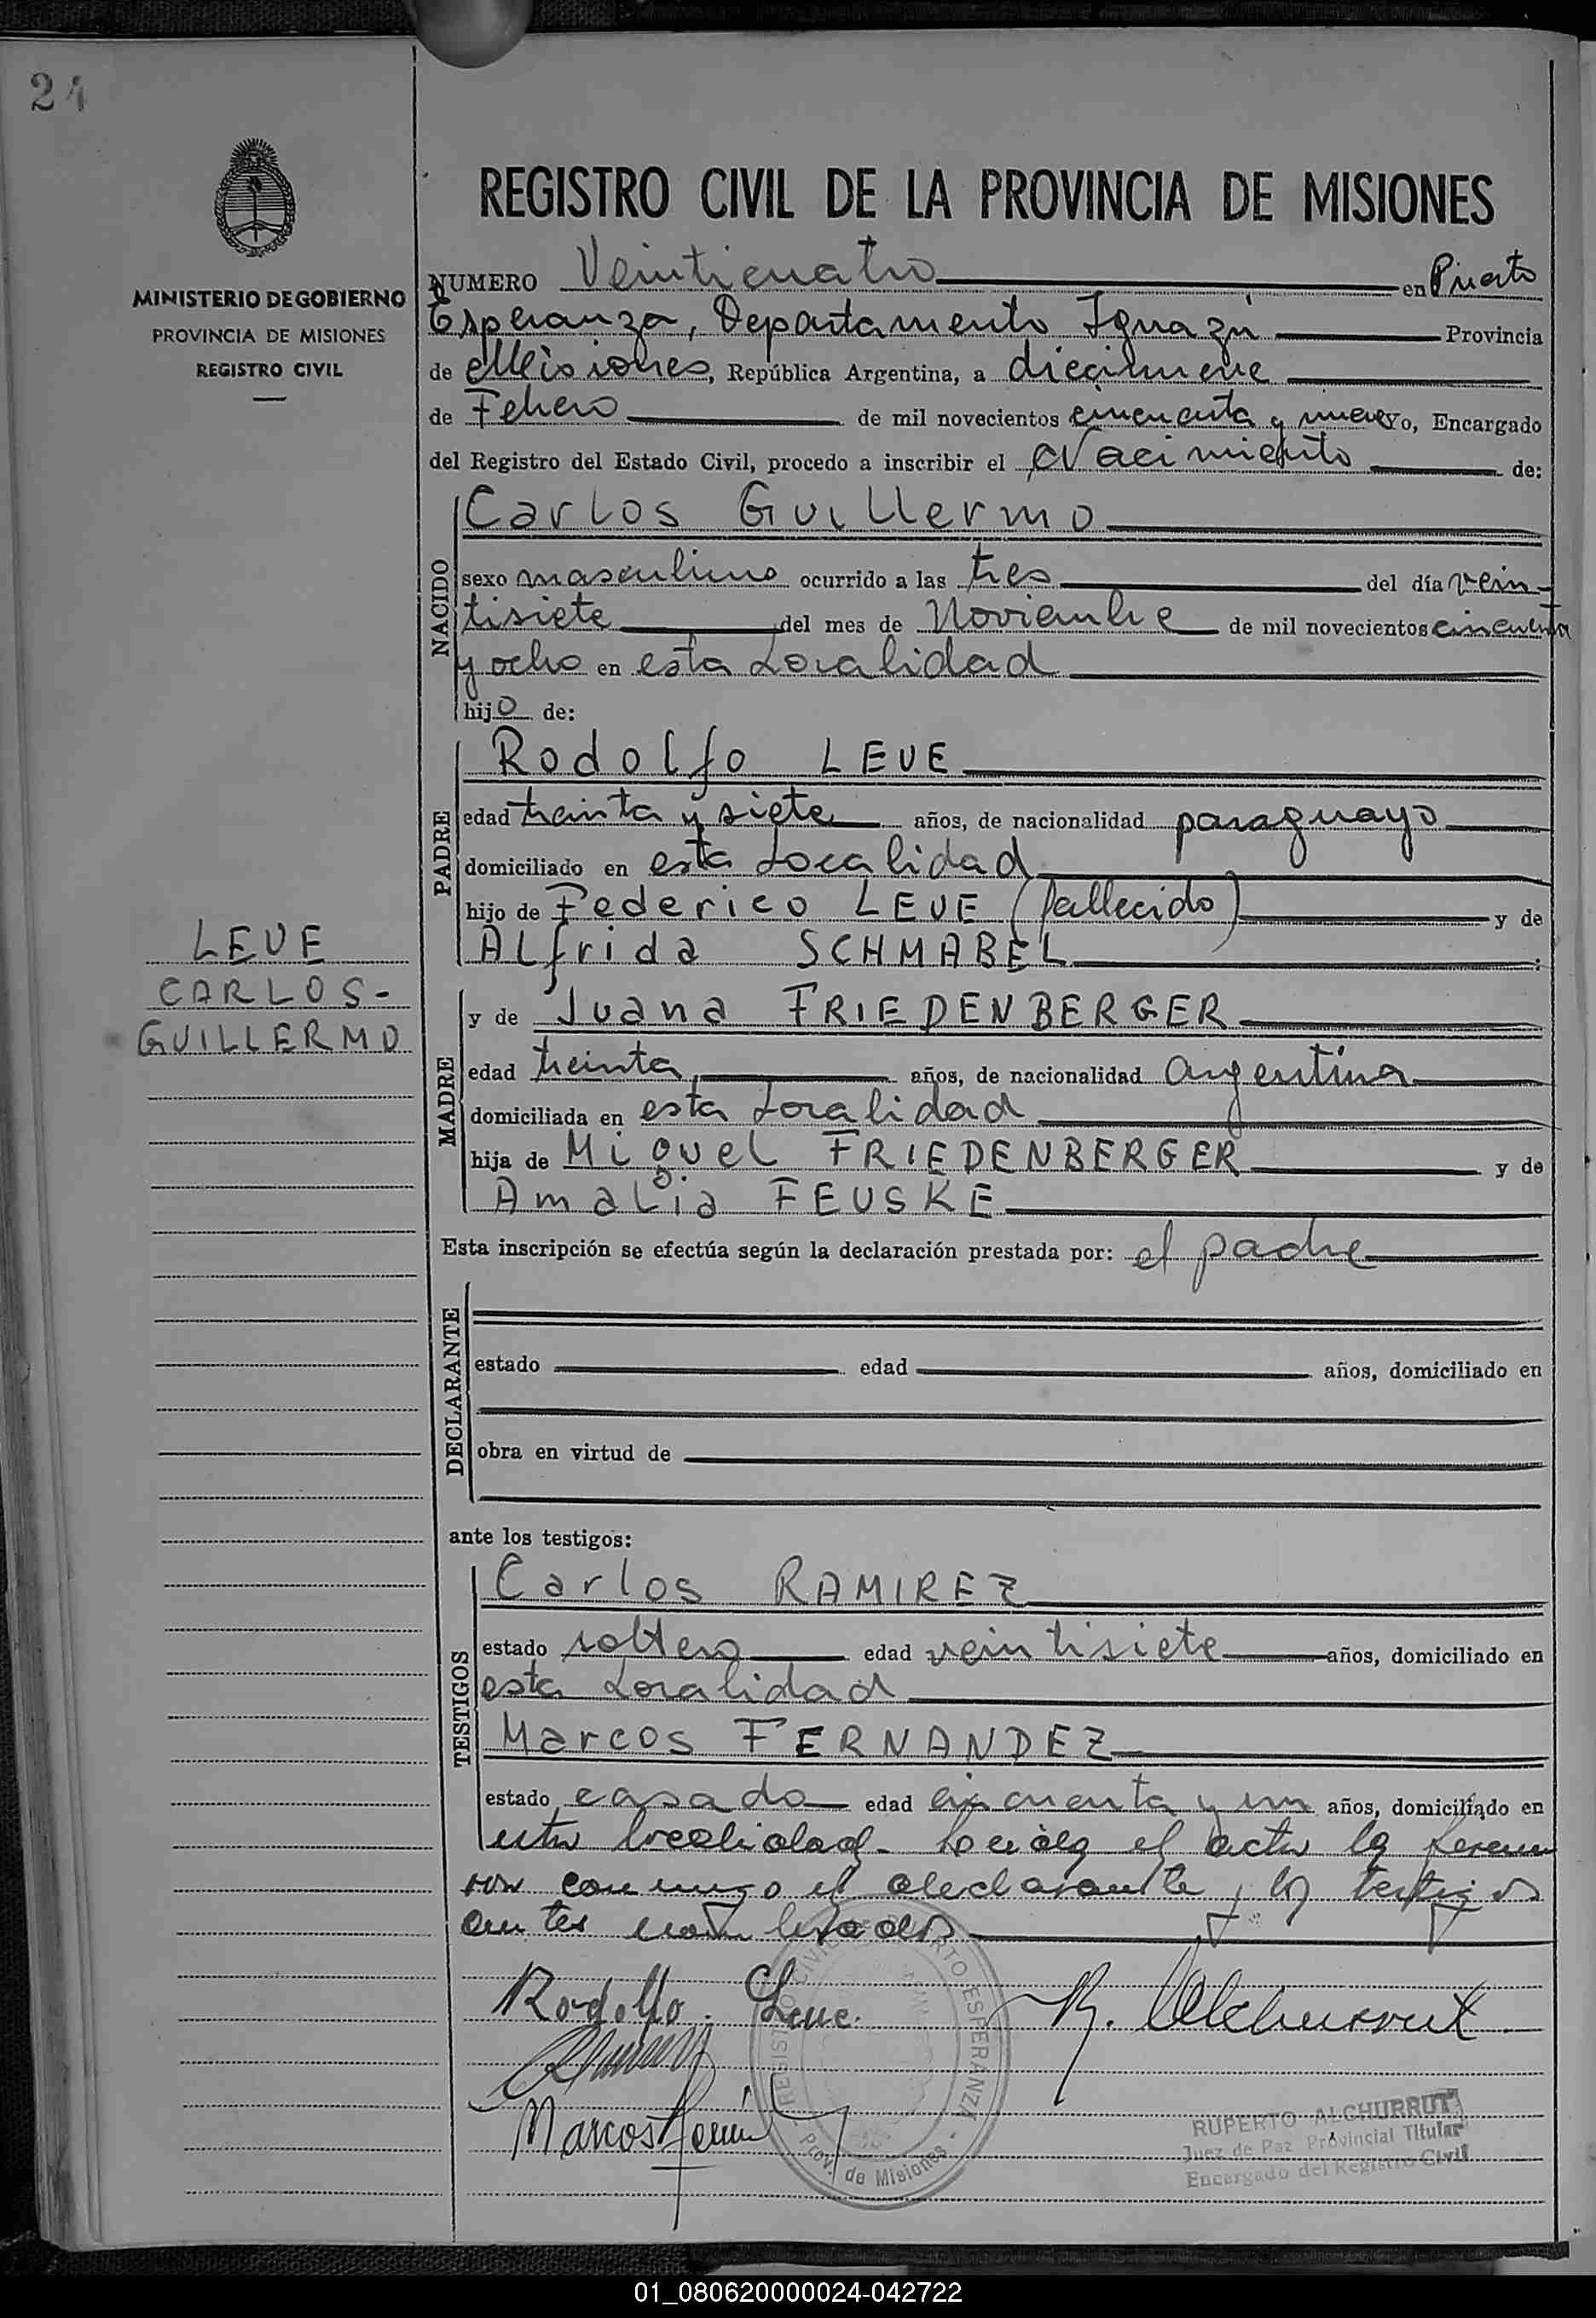 24
MINISTERIO DE GOBIERNO
PROVINCIA DE MISIONES
REGISTRO CIVIL
REGISTRO CIVIL DE LA PROVINCIA DE MISIONES
NUMERO Veinticuatro en Puerto
Esperanza, Departamento Iguazú Provincia
de Misiones, República Argentina, a diecinueve
de Febrero de mil novecientos cincuenta y nueve yo, Encargado
del Registro del Estado Civil, procedo a inscribir el Nacimiento de:
NACIDO
Carlos Guillermo
sexo masculino ocurrido a las tres del día vein-
tisiete del mes de Noviembre de mil novecientos cincuenta
y ocho en esta Localidad
hijo de:
PADRE
Rodolfo LEVE
edad treinta y siete años, de nacionalidad paraguayo
domiciliado en esta Localidad
hijo de Federico LEVE (fallecido) y de
Alfrida SCHMABEL ;
LEVE
CARLOS-
GUILLERMO
MADRE
y de Juana FRIEDENBERGER
edad treinta años, de nacionalidad argentina
domiciliada en esta Localidad
hija de Miguel FRIEDENBERGER y de
Amalia FEUSKE
Esta inscripción se efectúa según la declaración prestada por: el padre
DECLARANTE
estado edad años, domiciliado en
obra en virtud de
ante los testigos:
TESTIGOS
Carlos RAMIREZ
estado soltero edad veintisiete años, domiciliado en
esta Localidad
Marcos FERNANDEZ
estado casado edad cincuenta y un años, domiciliado en
esta localidad. Leida el acta la firma
ron conmigo el declarante y los testigos
antes nombrados
Rodolfo Leve. R. Alchurrut
Marcos
REGISTRO CIVIL PUERTO ESPERANZA
Prov. de Misiones
RUPERTO ALCHURRUT
Juez de Paz Provincial Titular
Encargado del Registro Civil
01_080620000024-042722